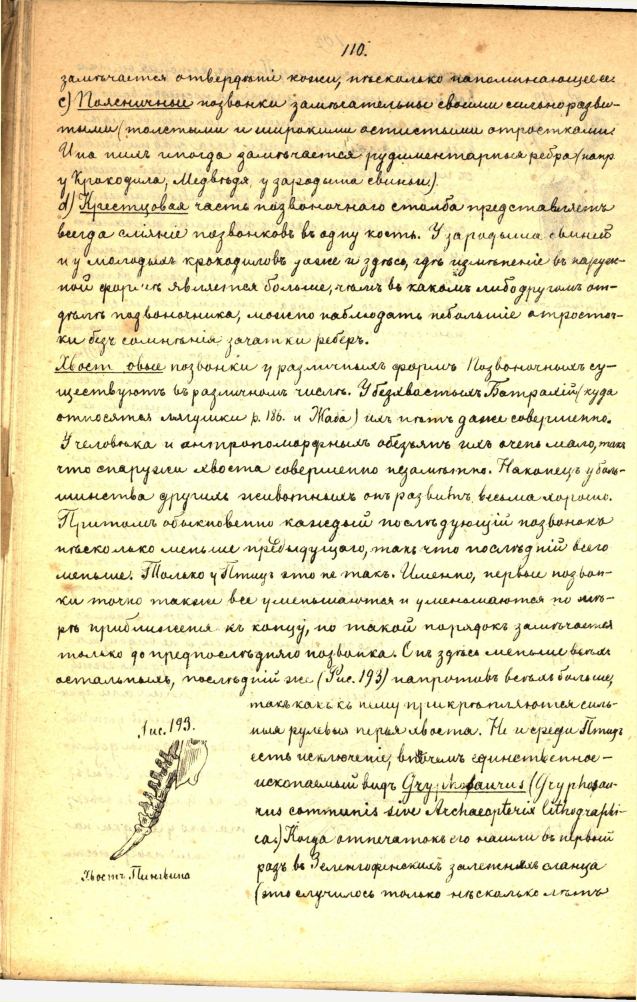 110.
замѣчается отвердѣніе кожи, нѣсколько напоминающее ее
c) Поясничные позвонки замѣчательны своими сильно разви-
тыми (толстыми и широкими остистыми отростками.
И на нихъ иногда замѣчается рудиментарныя ребра (напр.
у Крокодила, Медвѣдя, у зародыша свиньи).
d) Крестцовая часть позвоночнаго столба представляетъ
всегда сліяніе позвонковъ въ одну кость. У зародыша свиней
и у молодыхъ крокодиловъ даже и здѣсь, гдѣ измѣненіе въ наруж-
ной формѣ является больше, чѣмъ въ какомъ либо другомъ от-
дѣлѣ позвоночника, можно наблюдать небольшіе отросточ-
ки безъ сомнѣнія зачатки реберъ.
Хвостовые позвонки у различныхъ формъ Позвоночныхъ су-
ществуютъ въ различномъ числѣ. У безхвостыхъ Батрахій (куда
относятся лягушки р. 186. и Жаба) ихъ нѣтъ даже совершенно.
У человѣка и антропоморфныхъ обезьянъ ихъ очень мало, такъ
что снаружи хвоста совершенно незамѣтно. Наконецъ у боль-
шинства другихъ животныхъ онъ развитъ весьма хорошо.
Притомъ обыкновенно каждый послѣдующій позвонокъ
нѣсколько меньше предыдущаго, такъ что послѣдній всего
меньше. Только у Птицъ это не такъ. Именно, первые позвон-
ки точно также все уменьшаются и уменьшаются по мѣ-
рѣ приближенія къ концу, но такой порядокъ замѣчается
только до предпослѣдняго позвонка. Онъ здѣсь меньше всѣхъ
остальныхъ, послѣдній же (Рис. 193) напротивъ всѣхъ больше,
такъ какъ къ нему прикрѣпляются силь-
ныя рулевыя перья хвоста. Но и среди Птицъ
есть исключеніе, впрочемъ единственное –
ископаемый видъ Gryphosaurus (Gryphosau-
rus communis sive Archaeopterix lithographi-
ca.) Когда отпечатокъ его нашли въ первый
разъ въ Золенгофенскихъ залежахъ сланца
(это случилось только нѣсколько лѣтъ
Рис. 193.
Хвостъ Пингвина